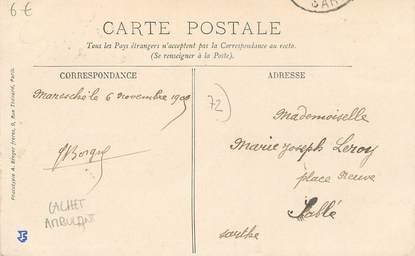 6€
SAR
CARTE POSTALE
Tous les Pays étrangers n'acceptent pas la Correspondance au recto.
(Se renseigner à la Poste).
CORRESPONDANCE
Maresché le 6 novembre
CACHET
AMBULANT
Phototypie A. Berger frères, 9, Rue Thénard, Paris.
ADRESSE
72)
Mademoiselle
Marie Joseph Leroy
place neuve
Sablé
sarthe